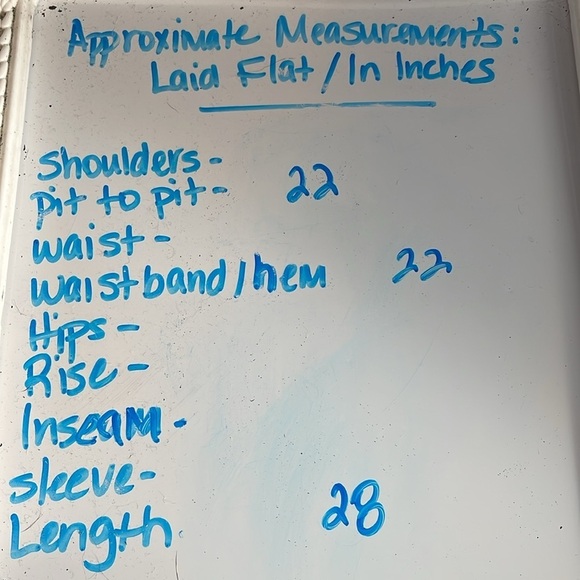 Approximate Measurements:
Laid Flat / In Inches
Shoulders -
pit to pit - 22
waist -
waistband / hem 22
Hips -
Rise -
Inseam -
sleeve -
Length 28